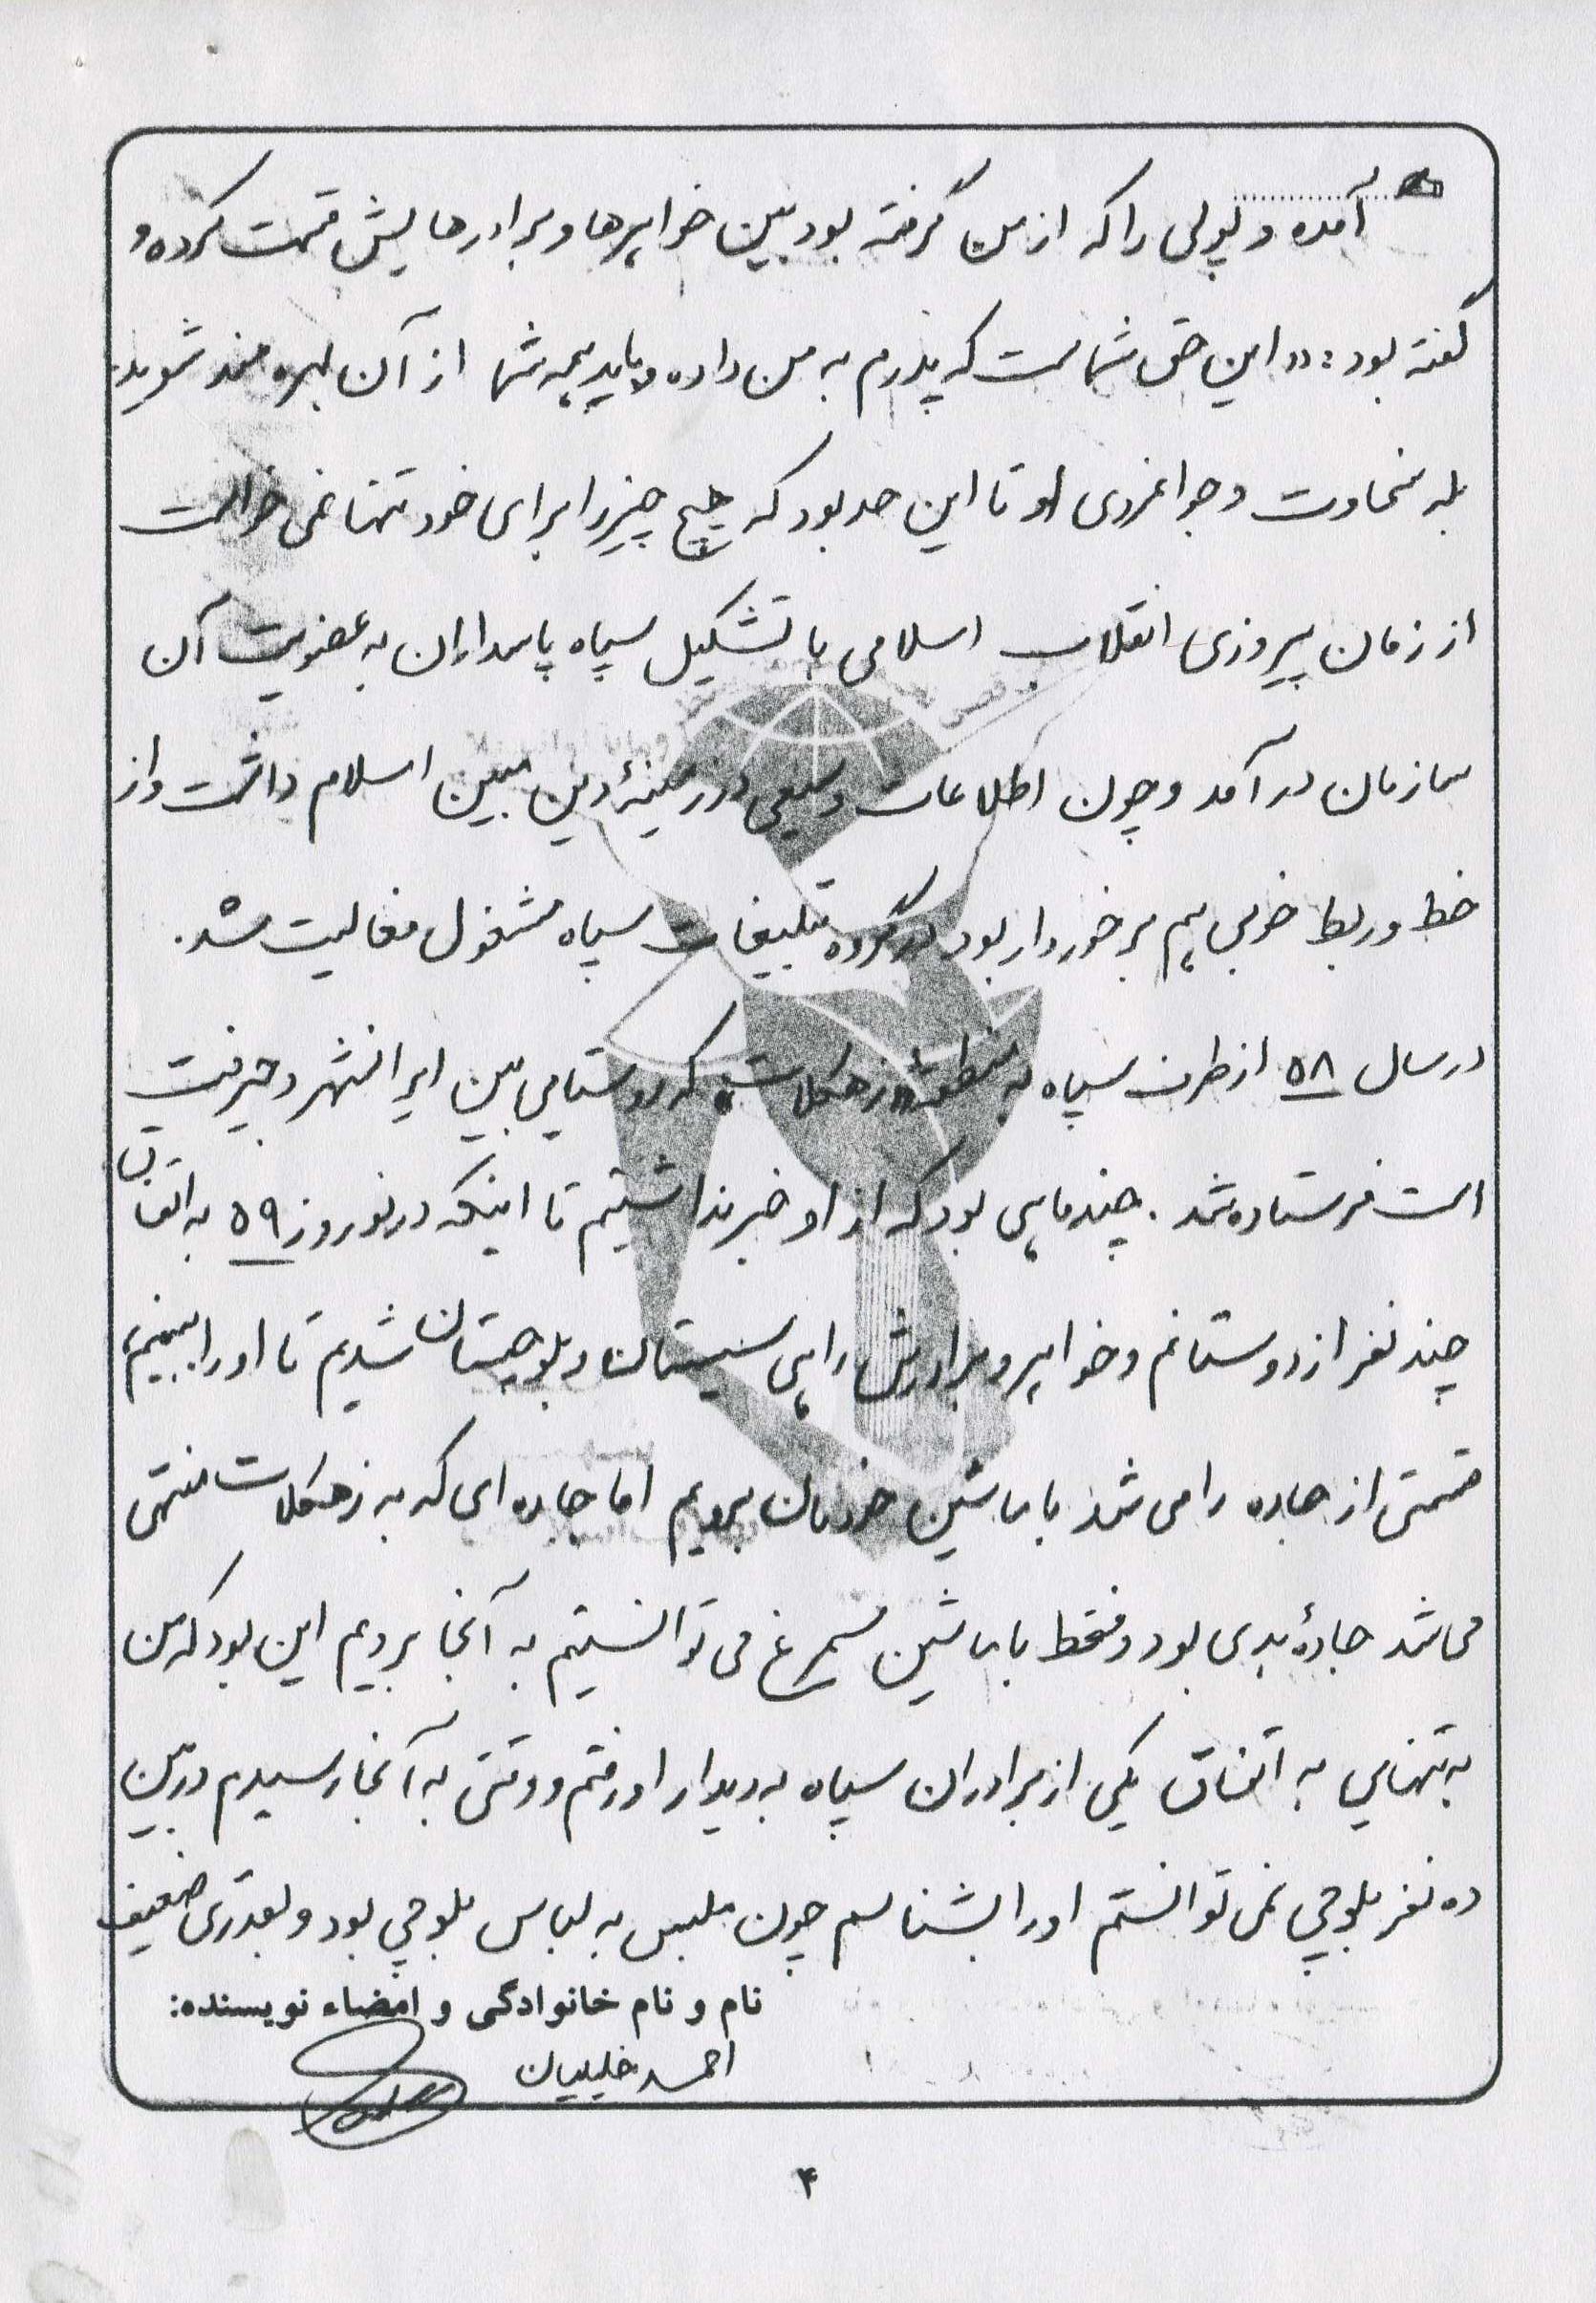 آمده و پولی را که از من گرفته بود بین خواهرها و برادرهایش قسمت کرده و
گفته بود: «این حق شماست که پدرم به من داده و باید همه شما از آن بهره مند شوید.
بله سخاوت و جوانمردی او تا این حد بود که هیچ چیز را برای خود تنها نمی خواست
از زمان پیروزی انقلاب اسلامی با تشکیل سپاه پاسداران به عضویت آن
سازمان در آمد و چون اطلاعات وسیعی در زمینهٔ دین مبین اسلام داشت و از
خط و ربط خوبی هم برخوردار بود در گروه تبلیغات سپاه مشغول فعالیت شد.
در سال ۵۸ از طرف سپاه به منطقهٔ «زهکلات» که روستایی بین ایرانشهر و جیرفت
است فرستاده شد. چند ماهی بود که از او خبر نداشتیم تا اینکه در نوروز ۵۹ به اتفاق
چند نفر از دوستانم و خواهر و برادرش راهی سیستان و بلوچستان شدیم تا او را ببینیم،
قسمتی از جاده را می شد با ماشین خودمان برویم اما جاده ای که به زهکلات منتهی
می شد جادهٔ بدی بود و فقط با ماشین سیمرغ می توانستیم به آنجا برویم این بود که من
به تنهایی به اتفاق یکی از برادران سپاه به دیدار او رفتم و وقتی به آنجا رسیدم در بین
ده نفر بلوچی نمی توانستم او را بشناسم چون ملبس به لباس بلوچی بود و بقدری ضعیف
نام و نام خانوادگی و امضاء نویسنده:
احمد خلیلیان
۴